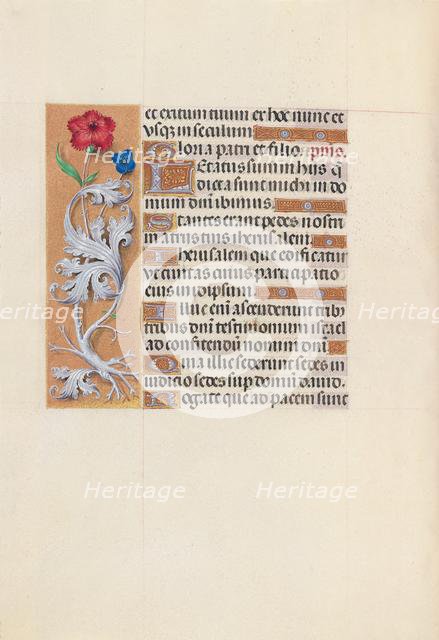 et exitum tuum ex hoc nunc et
vsq; in seculum
Gloria patri et filio. p̄us.
Letatus sum in hiis q̄
dicta sunt michi in do
mum dn̄i ibimus
Stantes erant pedes nostri
in atriis tuis iherusalem
Iherusalem que edificatur
vt ciuitas cuius participatio
eius in idipsum
Illuc em̄ ascenderunt trib9
tribus dn̄i testimonium israel
ad confitendum nomini dn̄i
Quia illic sederunt sedes in
iudicio sedes sup domū dauid.
Rogate que ad pacem sunt
Heritage
Heritage
Heritage
Heritage
Heritage
Heritage
Heritage
Heritage